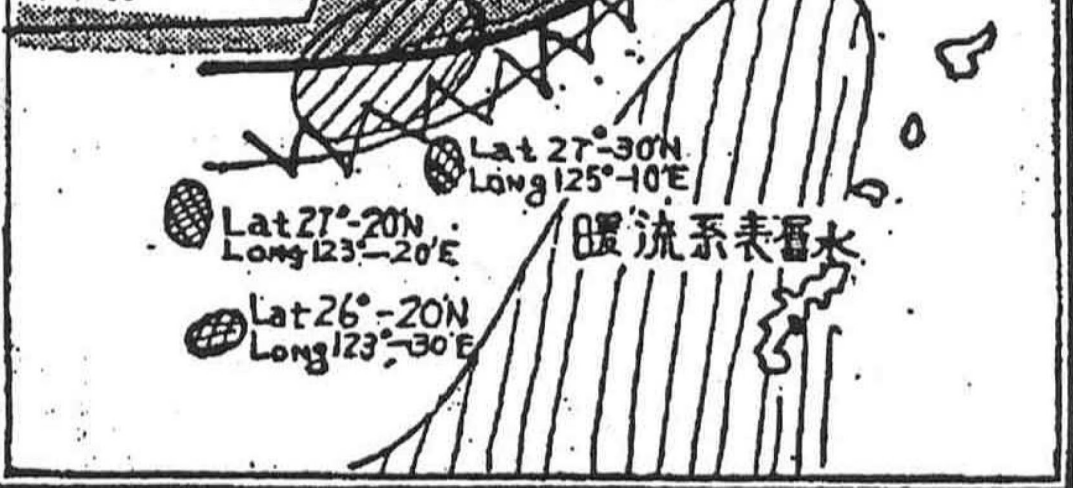 Lat 27°-30'N
Long 125°-10'E
Lat 27°-20'N
Long 123°-20'E
暖流系表層水
Lat 26°-20'N
Long 123°-30'E